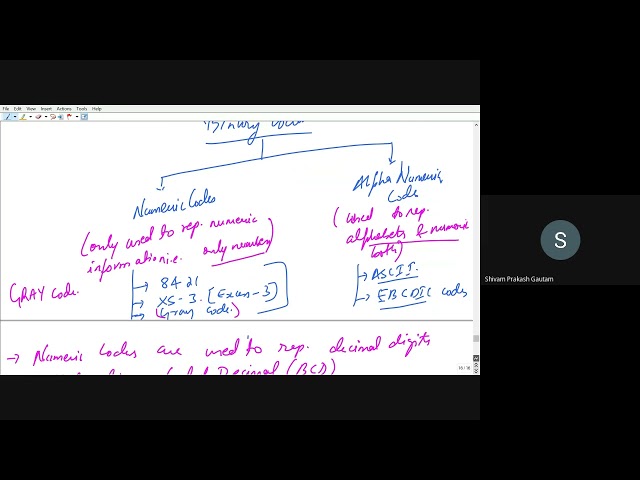 File Edit View Insert Actions Tools Help
Binary Codes
Numeric Codes
(only used to rep. numeric
information i.e. only numbers)
→ 8421
→ XS-3. [Excess-3]
→ (Gray Code.)
GRAY Code.
Alpha Numeric
Code
(used to rep.
alphabets & numeric
both)
→ ASCII.
→ EBCDIC codes
→ Numeric Codes are used to rep. decimal digits
Coded Decimal (BCD)
S
Shivam Prakash Gautam